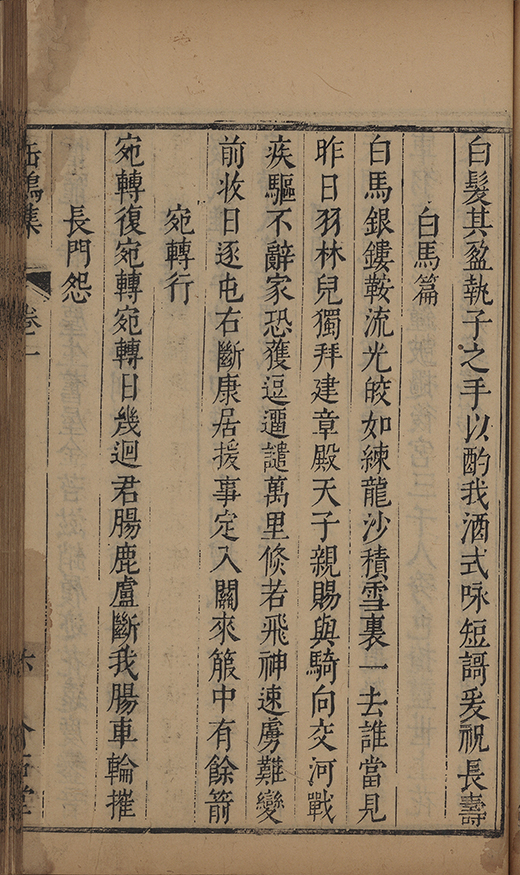 白髮其盈執子之手以酌我酒式咏短謌爰祝長壽
白馬篇
白馬銀鏤鞍流光皎如練龍沙積雪裏一去誰當見
昨日羽林兒獨拜建章殿天子親賜與騎向交河戰
疾驅不辭家恐獲逗遛譴萬里倏若飛神速虜難變
前收日逐屯右斷康居援事定入關來箙中有餘箭
宛轉行
宛轉復宛轉宛轉日幾迴君腸鹿盧斷我腸車輪摧
長門怨
集 卷二 六